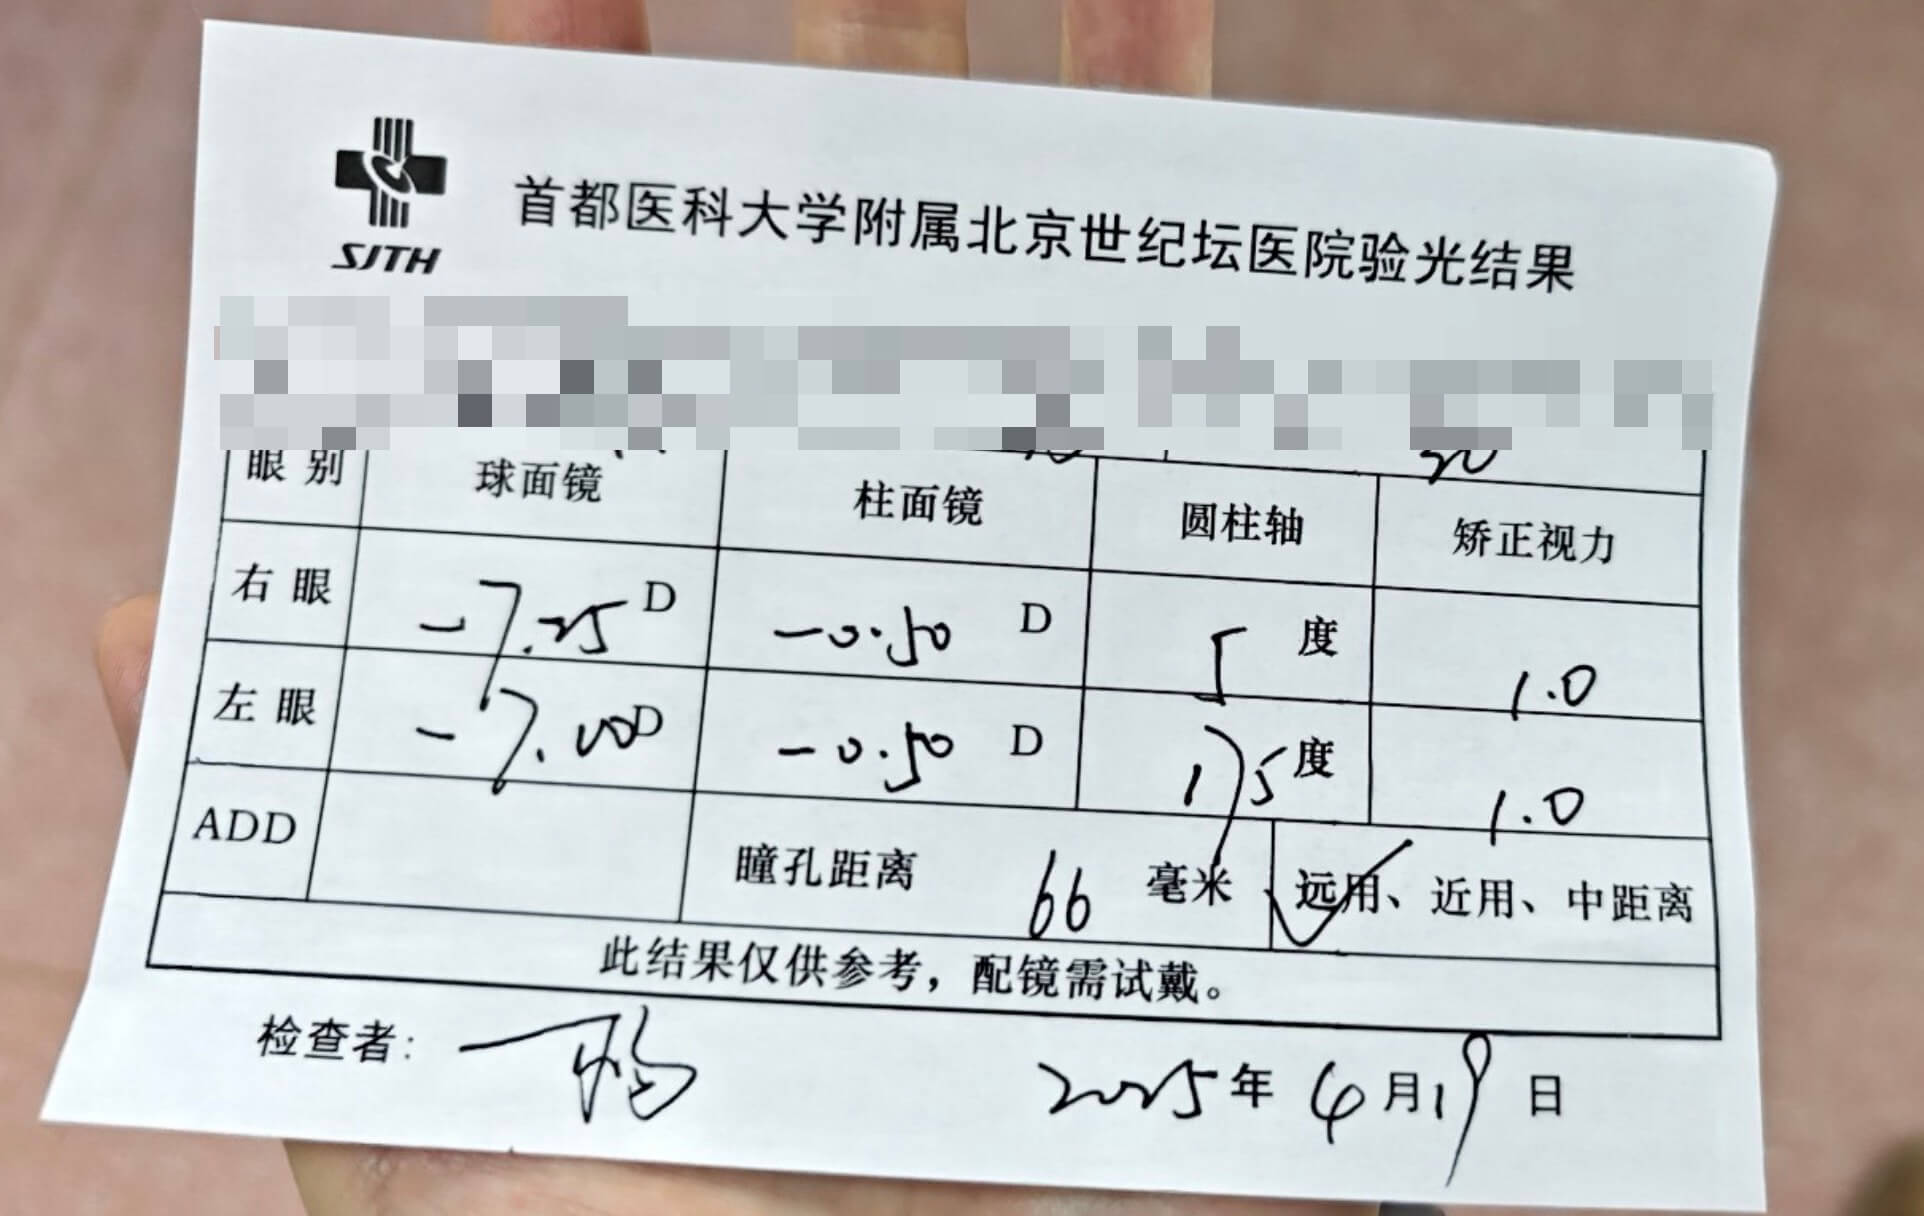 SJTH
首都医科大学附属北京世纪坛医院验光结果
眼 别 球面镜 柱面镜 圆柱轴 矫正视力
右 眼 -7.25 D -0.50 D 5 度 1.0
左 眼 -7.00 D -0.50 D 175 度 1.0
ADD 瞳孔距离 66 毫米 远用、近用、中距离
此结果仅供参考，配镜需试戴。
检查者：
2025 年 6 月 19 日